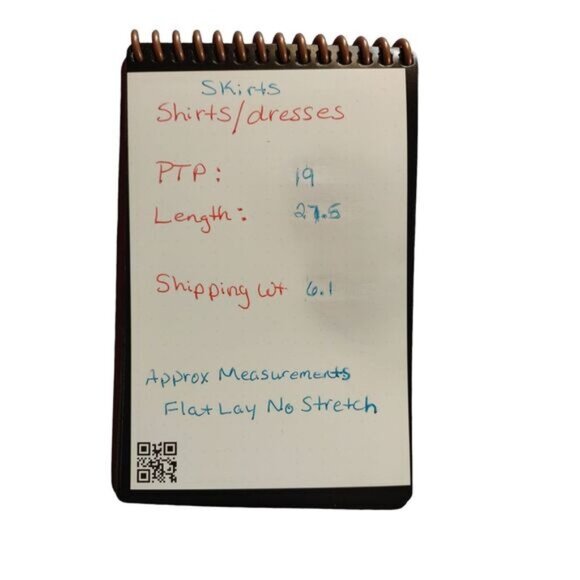 Skirts
Shirts/dresses
PTP: 19
Length: 27.5
Shipping wt 6.1
Approx Measurements
Flat Lay No Stretch